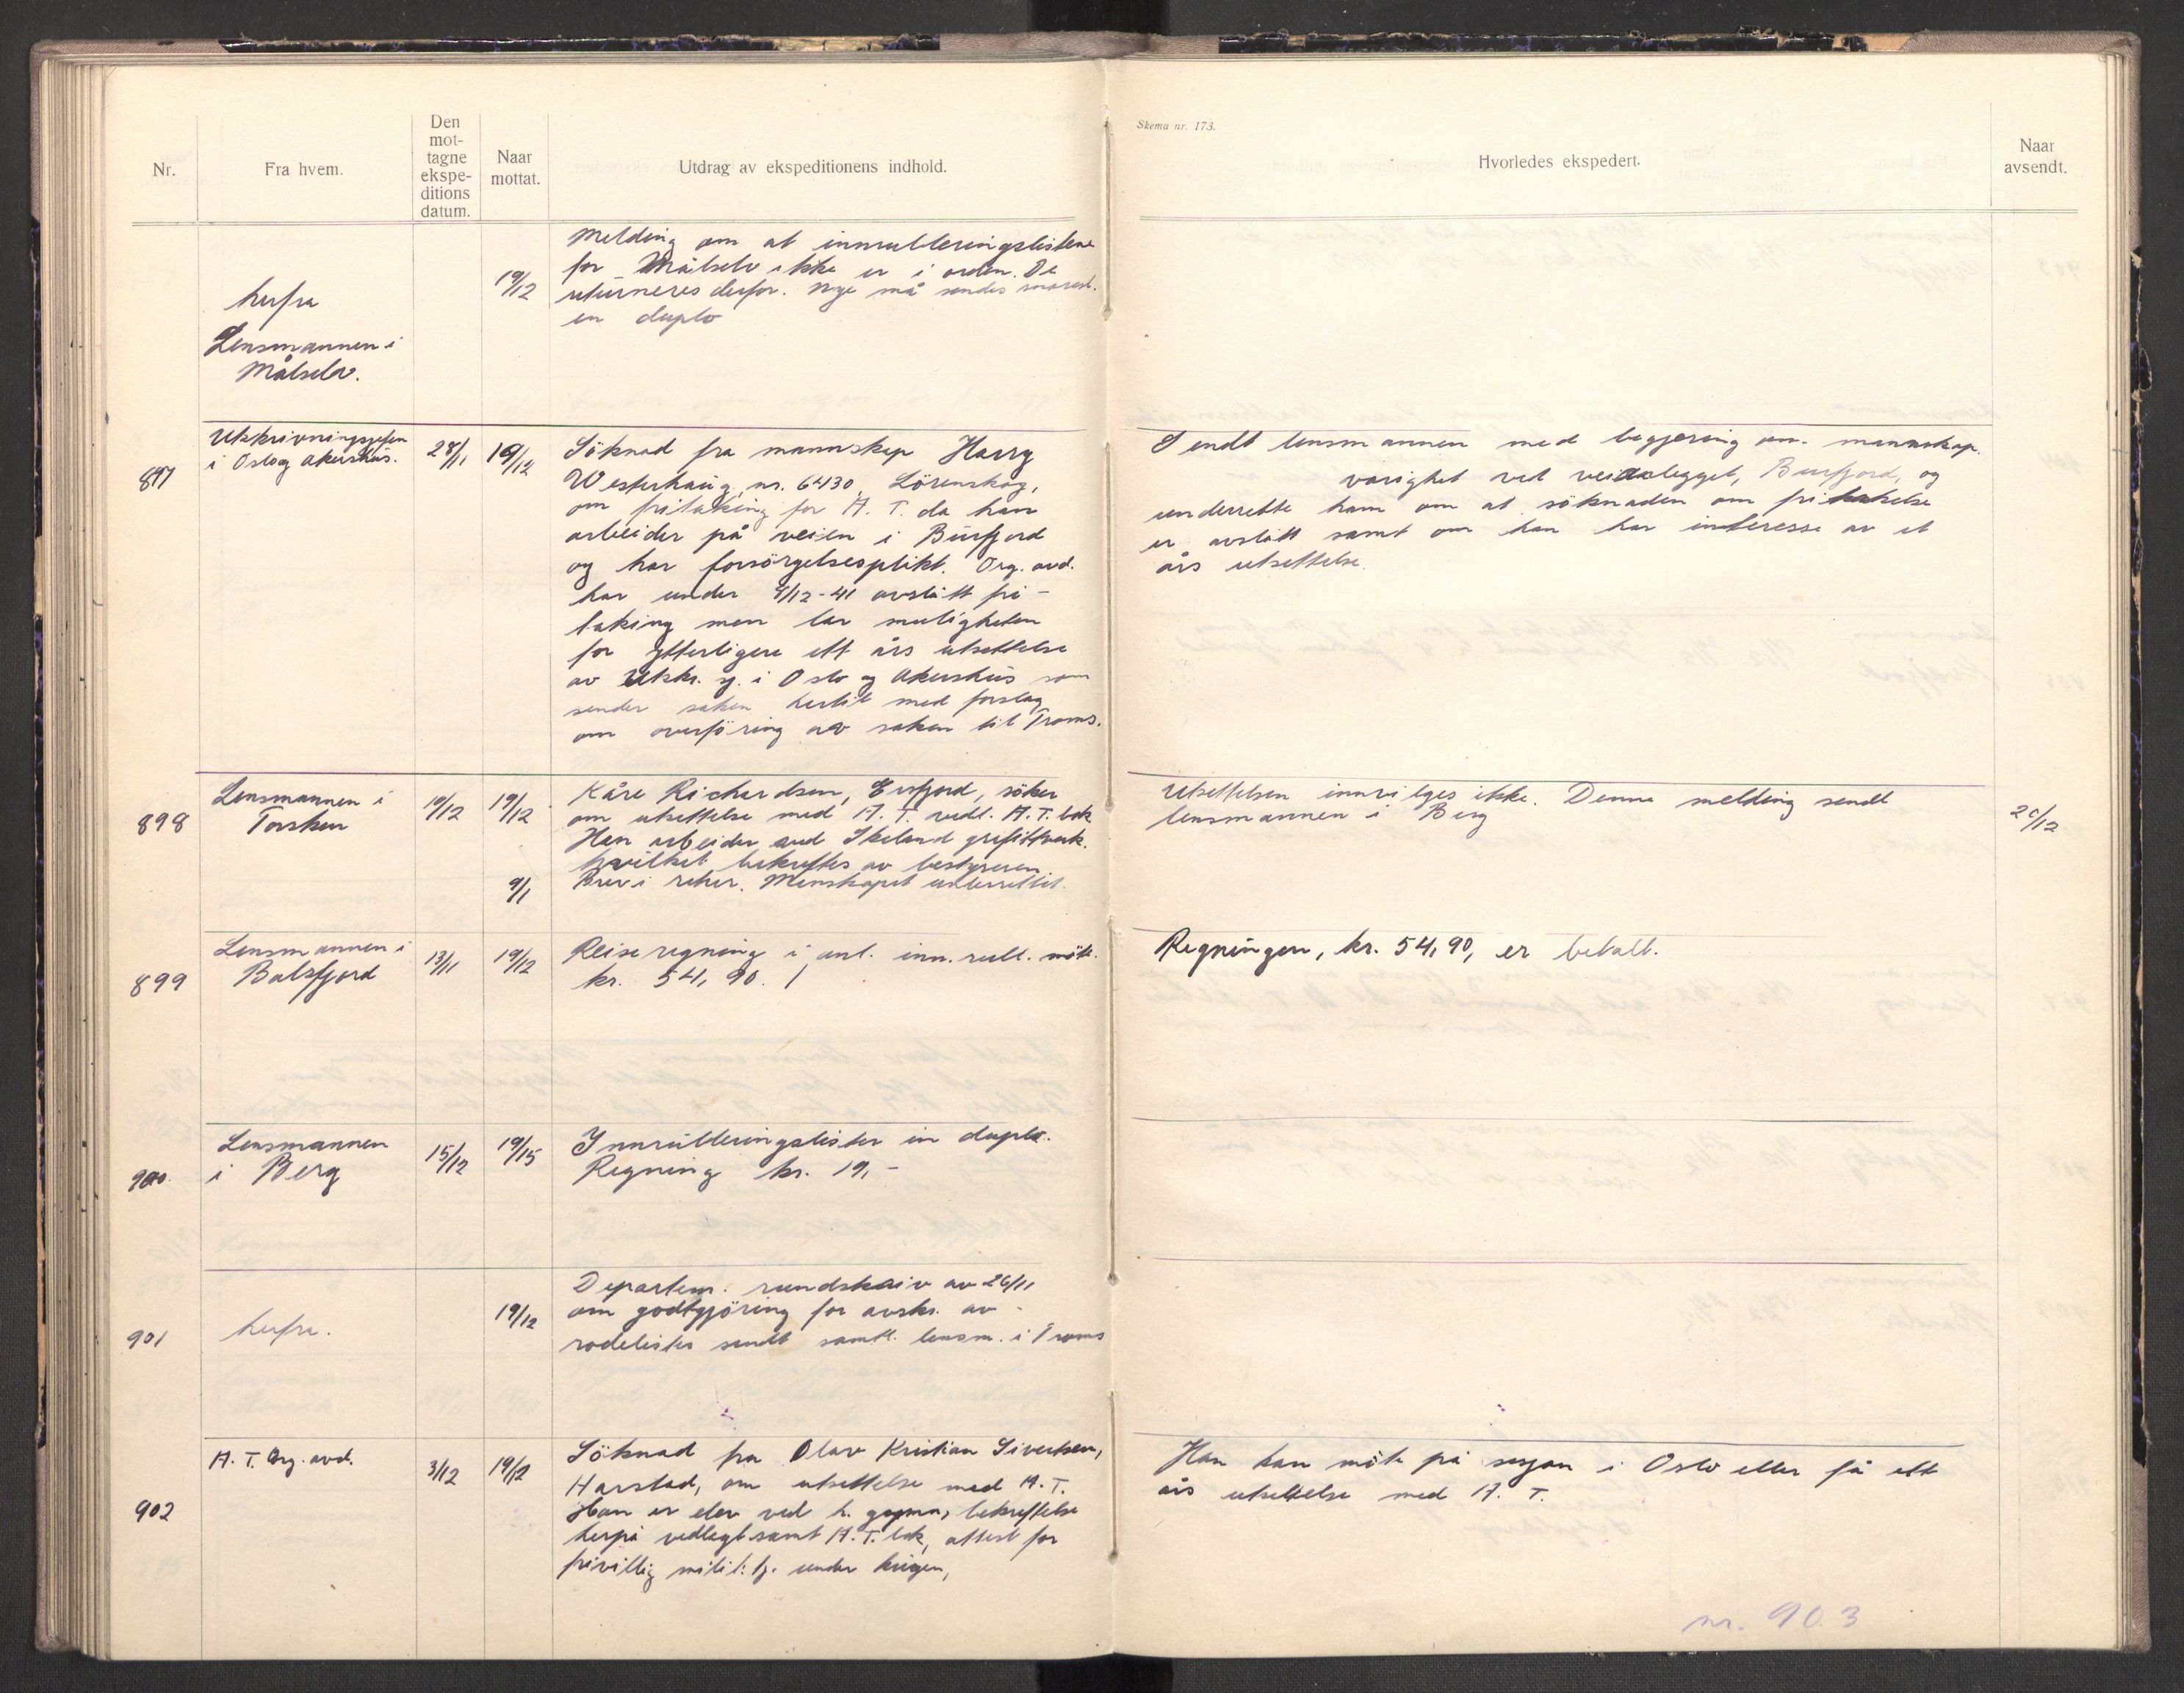 Nr.
Fra hvem.
Den
mot-
tagne
ekspe-
ditions
datum.
Naar
mottat.
Utdrag av ekspeditionens indhold.
Skema nr. 173.
Hvorledes ekspedert.
Naar
avsendt.
herfra
Lensmannen i
Målselv.
19/12
Melding om at innrulleringslistene
for Målselv ikke er i orden. De
returneres derfor. Nye må sendes snarest.
en duplo
897
Utskrivningssjefen
i Oslo og Akershus.
28/11
19/12
Söknad fra mannskap Harry
Westerhaug, nr. 6430, Lörenskog,
om fritaking for A. T. da han
arbeider på veien i Burfjord
og har forsörgelsesplikt. Org. avd.
har under 9/12-41 avslått fri-
taking men lar muligheten
for ytterligere ett års utsettelse
av Utskr. sj. i Oslo og Akershus som
sender saken hertil med forslag
om overföring av saken til Troms.
Sendt lensmannen med begjæring om mannskap.
varighet ved veianlegget, Burfjord, og
underrette ham om at söknaden om fritakelse
er avslått samt om han har interesse av et
års utsettelse.
898
Lensmannen i
Torsken
10/12
19/12
Kåre Richardsen, Ersfjord, söker
om utsettelse med A. T. vedl. A. T. bok
Han arbeider ved Skaland grafittverk.
hvilket bekreftes av bestyreren
9/1
Brev i retur. Mannskapet underrettet.
Utsettelsen innvilges ikke. Denne melding sendt
lensmannen i Berg
20/12
899
Lensmannen i
Balsfjord
13/11
19/12
Reiseregning i anl. inn.rull. möte.
kr. 54,90.
Regningen, kr. 54,90, er betalt.
900.
Lensmannen
i Berg
15/12
19/15
Innrulleringslister in duplo.
Regning kr. 19,-
901
herfra.
19/12
Departem. rundskriv av 26/11
om godtgjöring for avskr. av
rodelister sendt samtl. lensm. i Troms
902
A. T. Org. avd.
3/12
19/12
Söknad fra Olav Kristian Sivertsen,
Harstad, om utsettelse med A. T.
Han er elev ved h. gymn, bekreftelse
herpå vedlagt samt A. T. bok, attest for
frivillig milit. tj. under krigen,
Han kan möte på sesjon i Oslo eller få ett
års utsettelse med A. T.
nr. 903